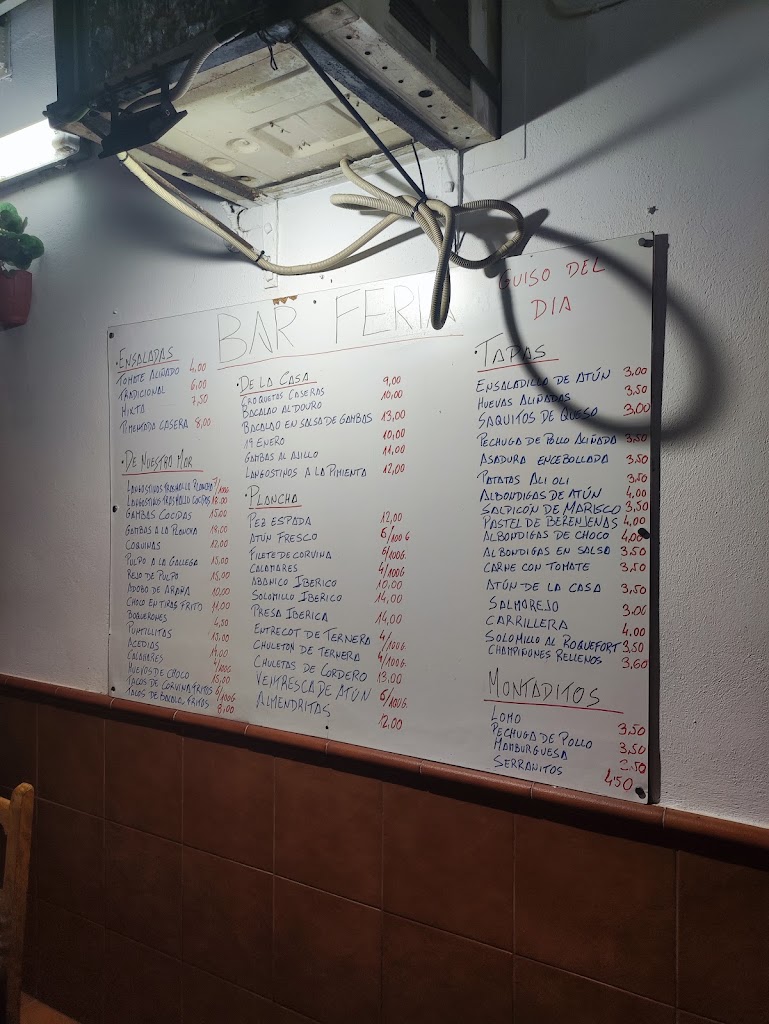 BAR FERIA
GUISO DEL
DIA
• ENSALADAS
TOMATE ALIÑADO 4,00
TRADICIONAL 6,00
MIXTA 7,50
PIMENTADA CASERA 8,00
• DE NUESTRO MAR
LANGOSTINOS TRASMALLO PLANCHA 7/100G
LANGOSTINOS TRASMALLO COCIDAS
GAMBAS COCIDAS 15.00
GAMBAS A LA PLANCHA
COQUINAS 12.00
PULPO A LA GALLEGA 15,00
REJO DE PULPO 15,00
ADOBO DE ARAÑA 10.00
CHOCO EN TIRAS FRITO 11,00
BOQUERONES
PUNTILLITAS
ACEDIAS
CALAMARES 4/100G
HUEVOS DE CHOCO 15,00
TACOS DE CORVINA FRITOS 6/100G
TACOS DE BACALA, FRITOS 8,00
• DE LA CASA
CROQUETAS CASERAS 9,00
BACALAO AL DOURO 10,00
BACALAO EN SALSA DE GAMBAS 13,00
19 ENERO 10,00
GAMBAS AL AJILLO 11,00
LANGOSTINOS A LA PIMIENTA 12,00
• PLANCHA
PEZ ESPADA 12,00
ATÚN FRESCO 6/100G
FILETE DE CORVINA 6/100G.
CALAMARES 4/100G.
ABANICO IBERICO 10,00
SOLOMILLO IBERICO 14,00
PRESA IBERICA 14,00
ENTRECOT DE TERNERA 4/100G.
CHULETON DE TERNERA 4/100G.
CHULETAS DE CORDERO 13.00
VENTRESCA DE ATÚN 6/100G.
ALMENDRITAS 12,00
• TAPAS
ENSALADILLA DE ATÚN 3,00
HUEVAS ALIÑADAS 3,50
SAQUITOS DE QUESO 3,00
PECHUGA DE POLLO ALIÑADA 3,50
ASADURA ENCEBOLLADA 3,50
PATATAS ALI OLI 3,50
ALBONDIGAS DE ATÚN 4,00
SALPICON DE MARISCO 3,50
PASTEL DE BERENJENAS 4,00
ALBONDIGAS DE CHOCO 4,00
ALBONDIGAS EN SALSA 3,50
CARNE CON TOMATE 3,50
ATÚN DE LA CASA 3,50
SALMOREJO 3,00
CARRILLERA 4,00
SOLOMILLO AL ROQUEFORT 3,50
CHAMPIÑONES RELLENOS 3,60
MONTADITOS
LOMO 3,50
PECHUGA DE POLLO 3,50
HAMBURGUESA 2,50
SERRANITOS 4,50